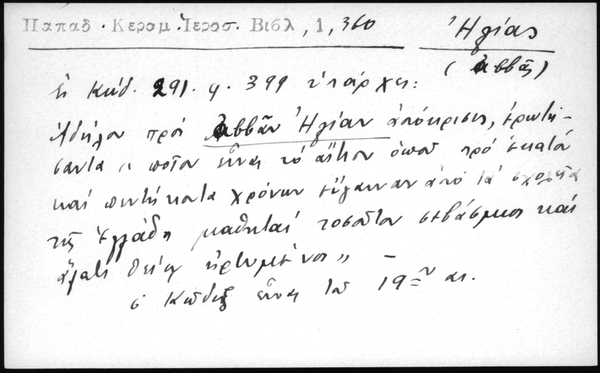 Παπαδ. Κεραμ. Ιεροσ. Βιβλ, 1, 360
Ἠλίας
(ἀββᾶς)
ἐν Κώδ. 291. φ. 399 ὑπάρχει:
Ἀδήλου πρὸς Ἀββᾶν Ἠλίαν ἀπόκρισις, ἐρωτή-
σαντα „ ποῖον εἶναι τὸ αἴτιον ὁποῦ πρὸ ἑκατὸν
καὶ πεντήκοντα χρόνων εὔγαιναν ἀπὸ τὰ σχολεῖα
τῆς Ἑλλάδος μαθηταὶ τοσοῦτον σεβάσμιοι καὶ
ἅλατι θείῳ ἠρτυμένοι „ —
ὁ Κῶδιξ εἶναι τοῦ 19ου αι.